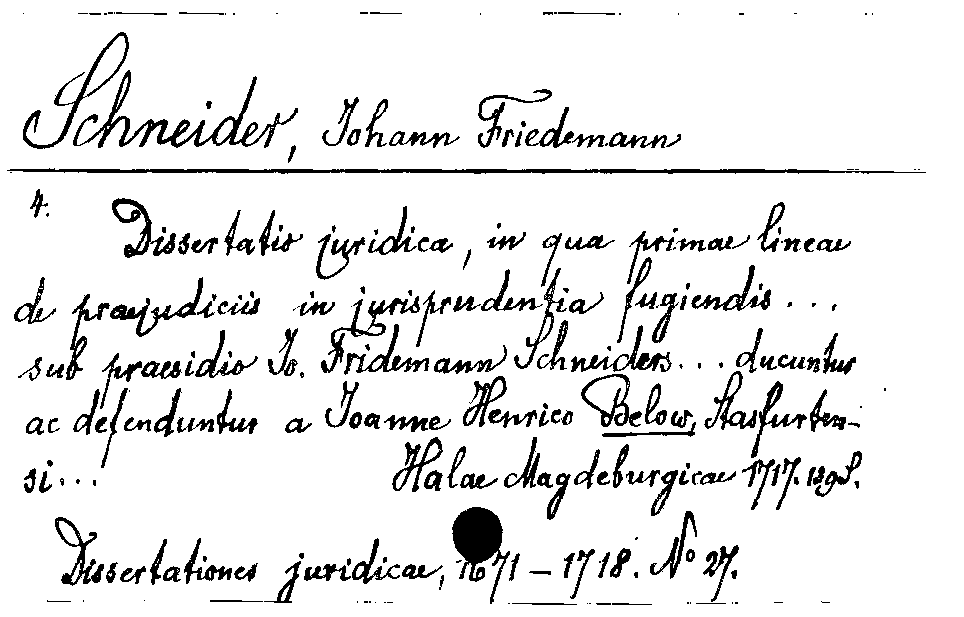 Schneider, Johann Friedemann
4.
Dissertatio juridica, in qua primae lineae
de praejudiciis in jurisprudentia fugiendis...
sub praesidio Jo. Fridemann Schneiders... ducuntur
ac defenduntur a Joanne Henrico Below, Stasfurten-
si... Halae Magdeburgicae 1717.
Dissertationes juridicae, 1671-1718. No 27.